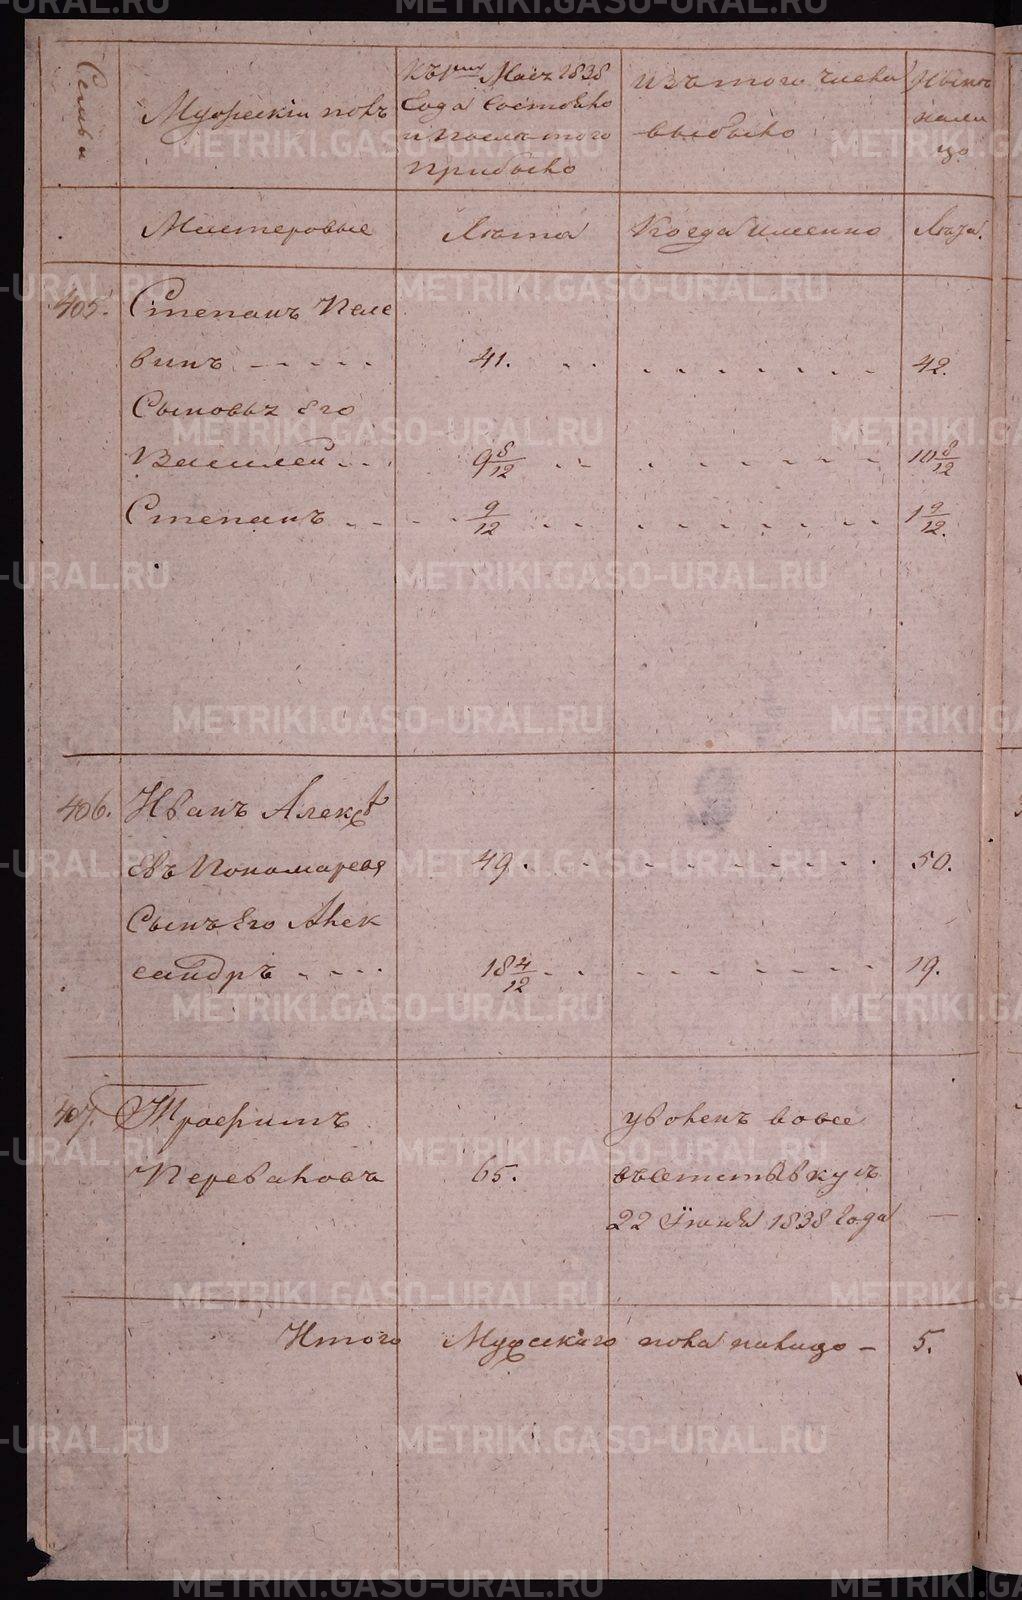 Семьи
Мужескій полъ
Къ 1му Маія 1838
Года Состояло
и после того
прибыло
изъ того числа
выбыло
Нынѣ
нали
цо
Мастеровые
Лѣта
Когда именно
Лѣта.
405. Степанъ Пеле
винъ 41. 42.
Сыновья Его
Василей 9 8/12 10 8/12
Степанъ 9/12 1 9/12.
406. Иванъ Алексѣ
евъ Пономаревъ 49. 50.
Сынъ Его Алек
сандръ 18 4/12 19.
407. Трофимъ уволенъ вовсе
Переваловъ 65.
22 Іюня 1838 Года —
Итого Мужескаго пола налицо — 5.
METRIKI.GASO-URAL.RU